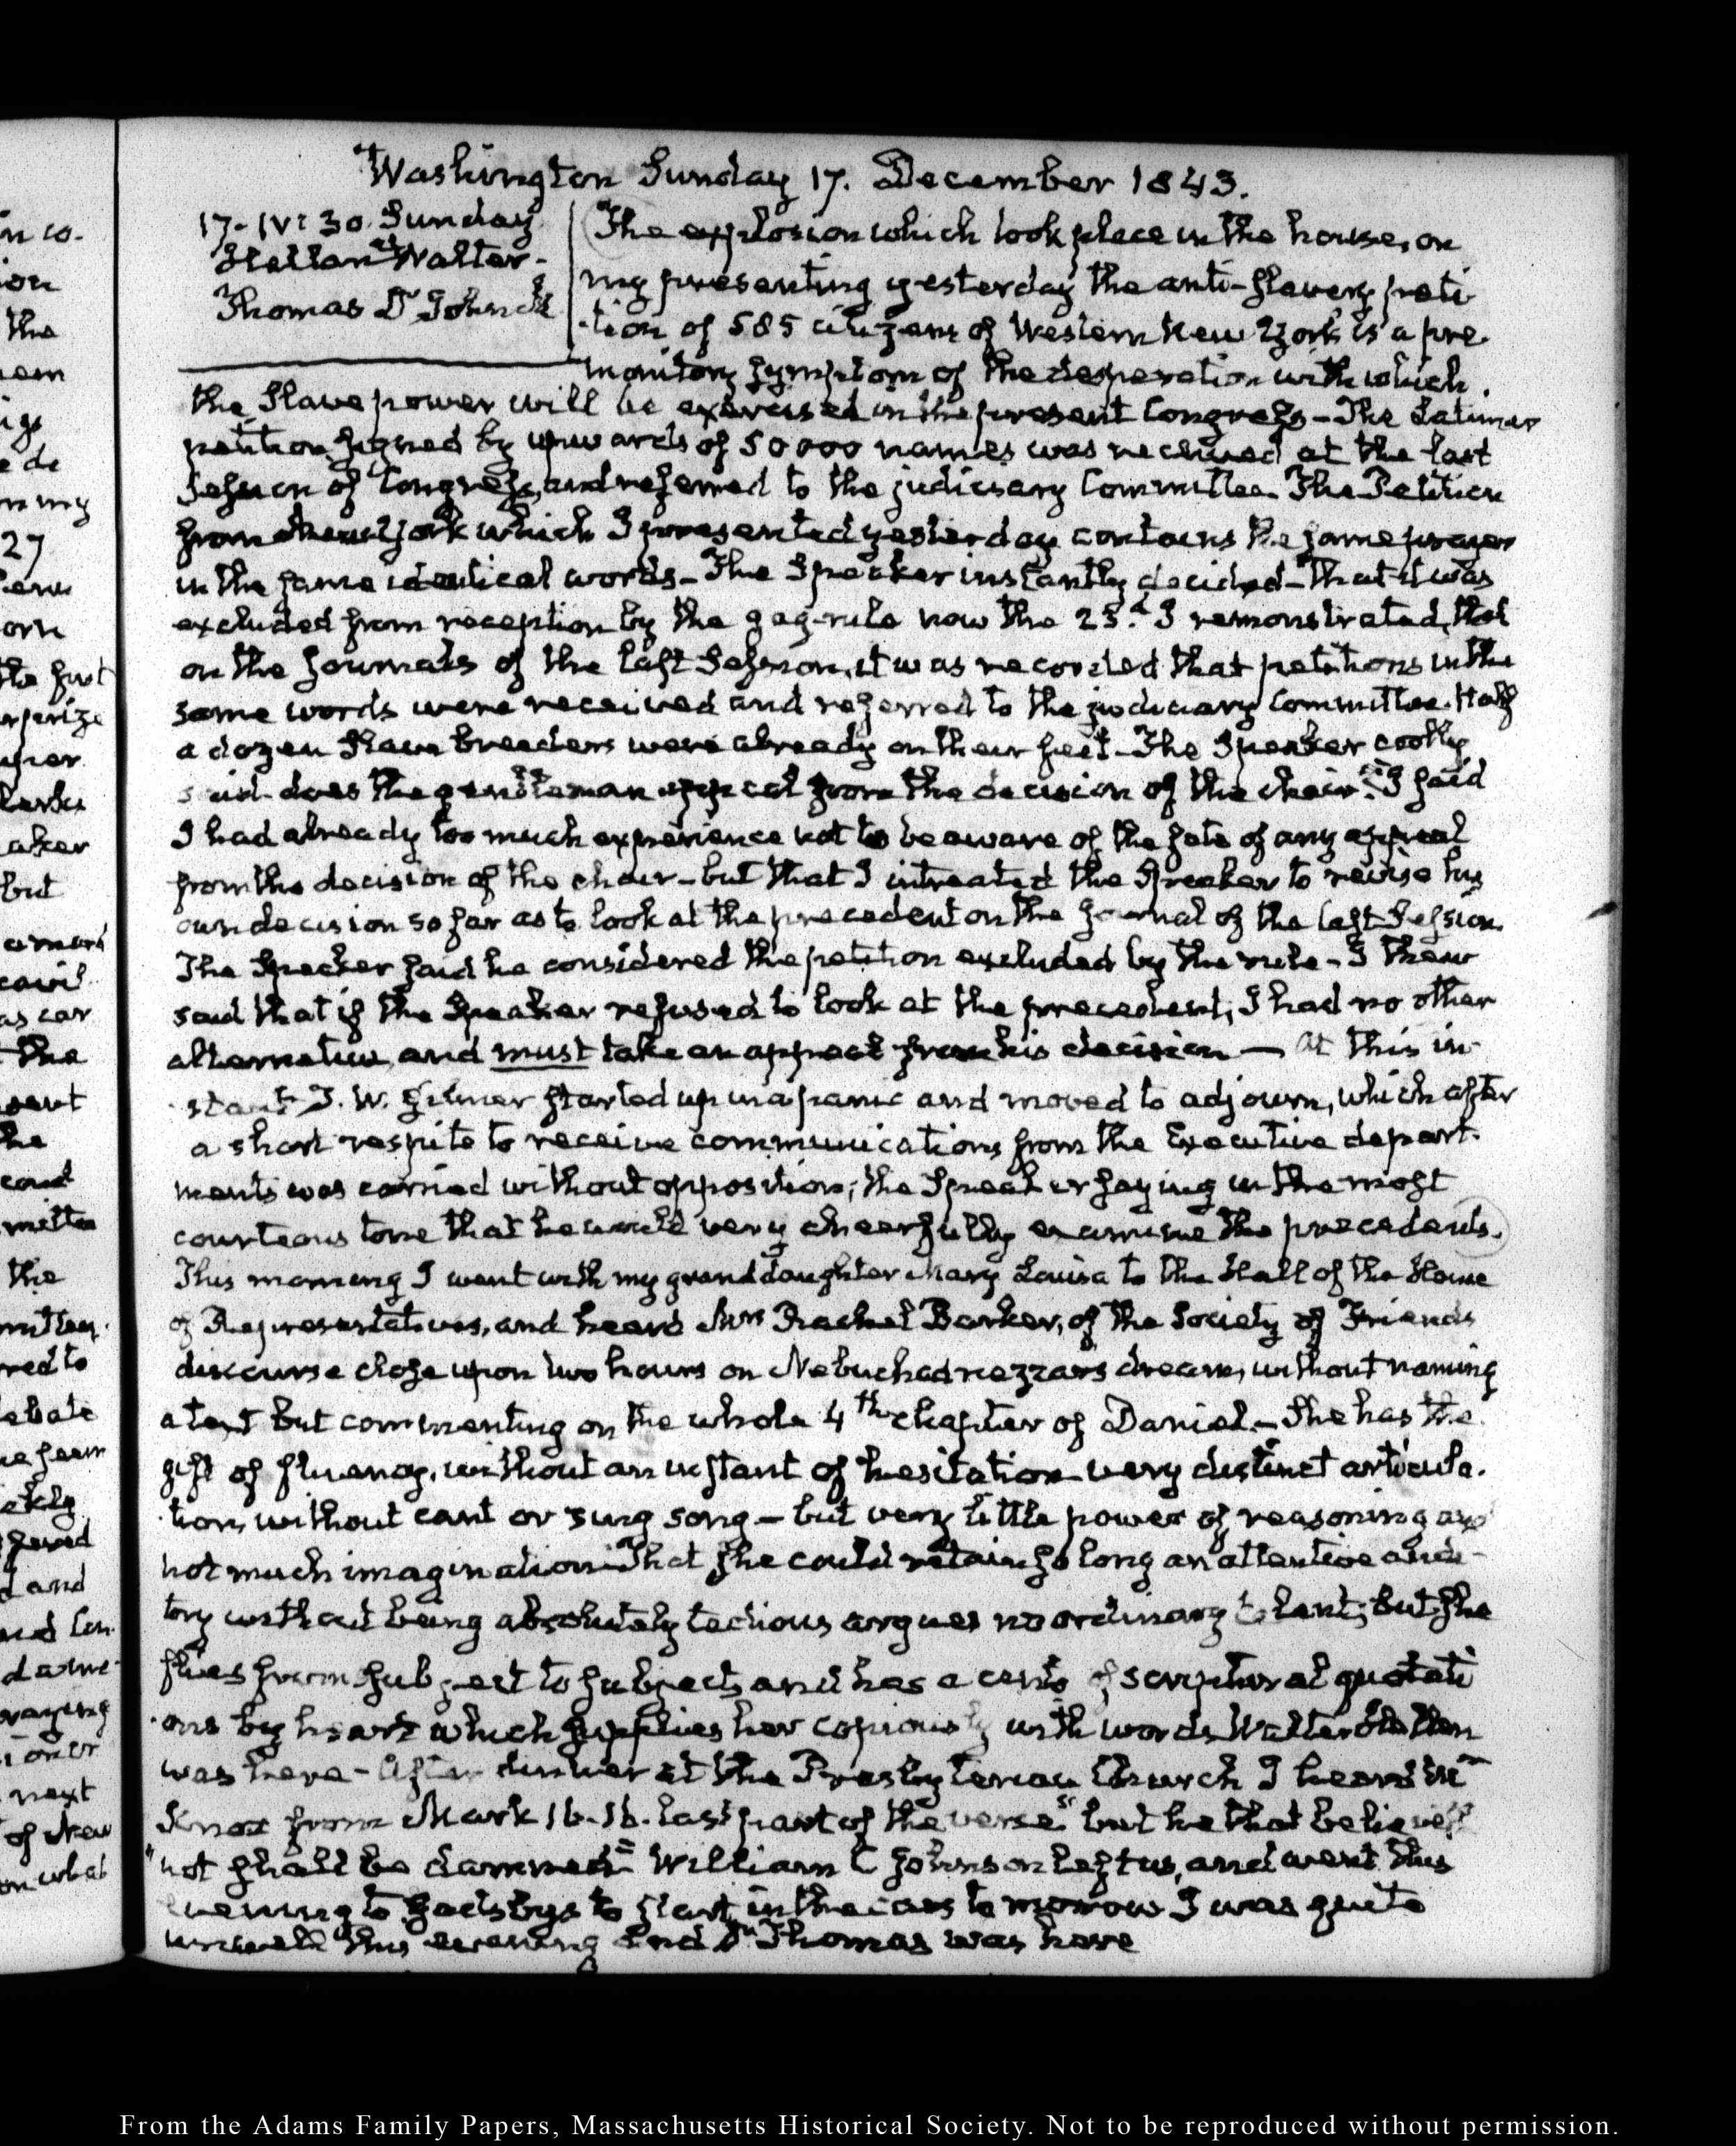 Washington Sunday 17. December 1843.
17. IV: 30. Sunday
Hellan Walter.
Thomas Dr John
The explosion which took place in the house, on
my presenting yesterday the anti-slavery peti
-tion of 585 citizens of Western New York is a pre
monitory symptom of the desperation with which
the Slave power will be exercised in the present Congress – The Latimer
petition signed by upwards of 50000 names was received at the last
Session of Congress, and referred to the judiciary Committee. The Petition
from New York which I presented yesterday contains the same prayer
in the same identical words – The Speaker instantly decided – that it was
excluded from reception by the gag-rule now the 23.d I remonstrated, that
on the journals of the last Session, it was recorded that petitions in the
same words were received and referred to the judiciary Committee. Half
a dozen Slave breeders were already on their feet – The Speaker coolly
said does the gentleman appeal from the decision of the chair? I said
I had already too much experience not to be aware of the fate of any appeal
from the decision of the chair – but that I intreated the Speaker to revise his
own decision so far as to look at the precedent on the journal of the last Session.
The Speaker said he considered the petition excluded by the rule – I then
said that if the Speaker refused to look at the precedent, I had no other
alternative and must take an appeal from his decision — At this in-
stant T. W. Gilmer started up in a panic and moved to adjourn, which after
a short respite to receive communications from the Executive depart-
ments was carried without opposition; the Speaker saying in the most
courteous tone that he would very cheerfully examine the precedents.
This morning I went with my granddaughter Mary Louisa to the Hall of the House
of Representatives, and heard Mrs Rachel Barker, of the Society of Friends
discourse close upon two hours on Nebuchadnezzars dream, without naming
a text but commenting on the whole 4th chapter of Daniel. – She has the
gift of fluency, without an instant of hesitation very distinct articula.
-tion, without cant or sing song – but very little power of reasoning and
not much imagination – That she could retain so long an attentive audi-
tory without being absolutely tedious argues no ordinary talent; but she
flies from subject to subject and has a cento of scriptural quotati
-ons by heart which supplies her copiously with words. Walter Hellen
was here – After dinner at the Presbyterian Church I heard Mr
Knox from Mark 16. 16. last part of the verse "but he that believeth
"not shall be damned" William C Johnson left us, and went this
evening to Gadsbys to start in the cars to morrow I was quite
unwell this evening and Dr Thomas was here
From the Adams Family Papers, Massachusetts Historical Society. Not to be reproduced without permission.